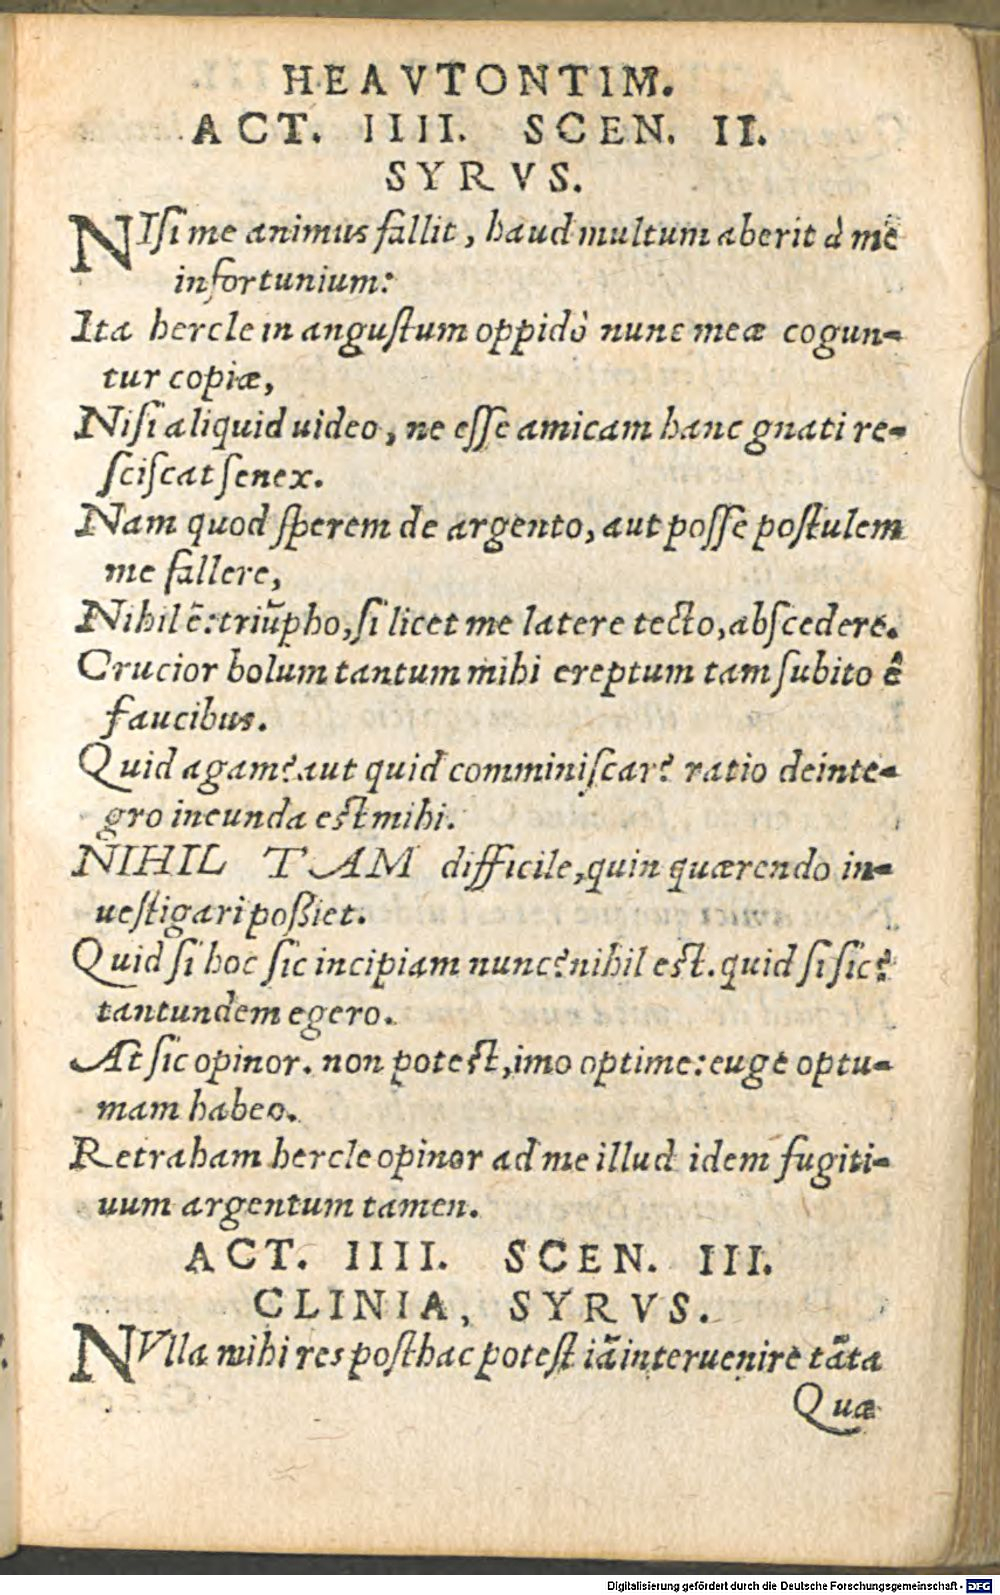 HEAVTONTIM.
ACT. IIII. SCEN. II.
SYRVS.
NIſi me animus fallit, haud multum aberit à me
infortunium:
Ita hercle in anguſtum oppidò nunc meæ cogun-
tur copiæ,
Niſi aliquid uideo, ne eſſe amicam hanc gnati re-
ſciſcat ſenex.
Nam quod ſperem de argento, aut poſſe poſtulem
me fallere,
Nihil ē: triūpho, ſi licet me latere tecto, abſcedere.
Crucior bolum tantum mihi ereptum tam ſubito ê
faucibus.
Quid agam? aut quid comminiſcar? ratio deinte-
gro incunda eſt mihi.
NIHIL TAM difficile, quin quærendo in-
ueſtigari poßiet.
Quid ſi hoc ſic incipiam nunc? nihil eſt. quid ſi ſic?
tantundem egero.
At ſic opinor. non poteſt, imo optime: euge optu-
mam habeo.
Retraham hercle opinor ad me illud idem fugiti-
uum argentum tamen.
ACT. IIII. SCEN. III.
CLINIA, SYRVS.
NVlla mihi res poſthac poteſt iā interuenire tāta
Quæ
Digitalisierung gefördert durch die Deutsche Forschungsgemeinschaft - DFG